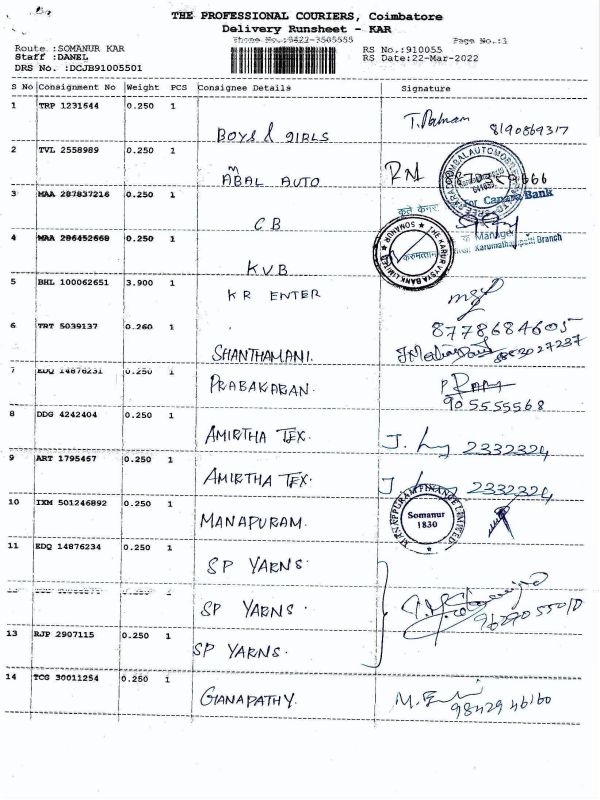 THE PROFESSIONAL COURIERS, Coimbatore
Delivery Runsheet - KAR
Phone No.:0422-3505555
Page No.:1
Route :SOMANUR KAR
Staff :DANEL
DRS No. :DCJB91005501
RS No.:910055
RS Date:22-Mar-2022
S No Consignment No Weight PCS Consignee Details Signature
1 TRP 1231644 0.250 1 BOYS & GIRLS 8190869317
2 TVL 2558989 0.250 1 ABAL AUTO
3 MAA 287837216 0.250 1 CB
For Canara Bank
Manager
Karumathampatti Branch
4 MAA 286452668 0.250 1 KVB
THE KARUR VYSYA BANK LIMITED
SOMANUR
5 BHL 100062651 3.900 1 KR ENTER
8778684605
6 TRT 5039137 0.260 1 SHANTHAMANI.
7 EDQ 14876231 0.250 1 PRABAKARAN.
905555568
8 DDG 4242404 0.250 1 AMIRTHA TEX. 2332324
9 ART 1795467 0.250 1 AMIRTHA TEX. 2332324
10 IXM 501246892 0.250 1 MANAPURAM.
MANAPPURAM FINANCE LIMITED
Somanur
1830
11 EDQ 14876234 0.250 1 SP YARNS
SP YARNS.
13 RJP 2907115 0.250 1 SP YARNS.
14 TCG 30011254 0.250 1 GANAPATHY.
9842946160